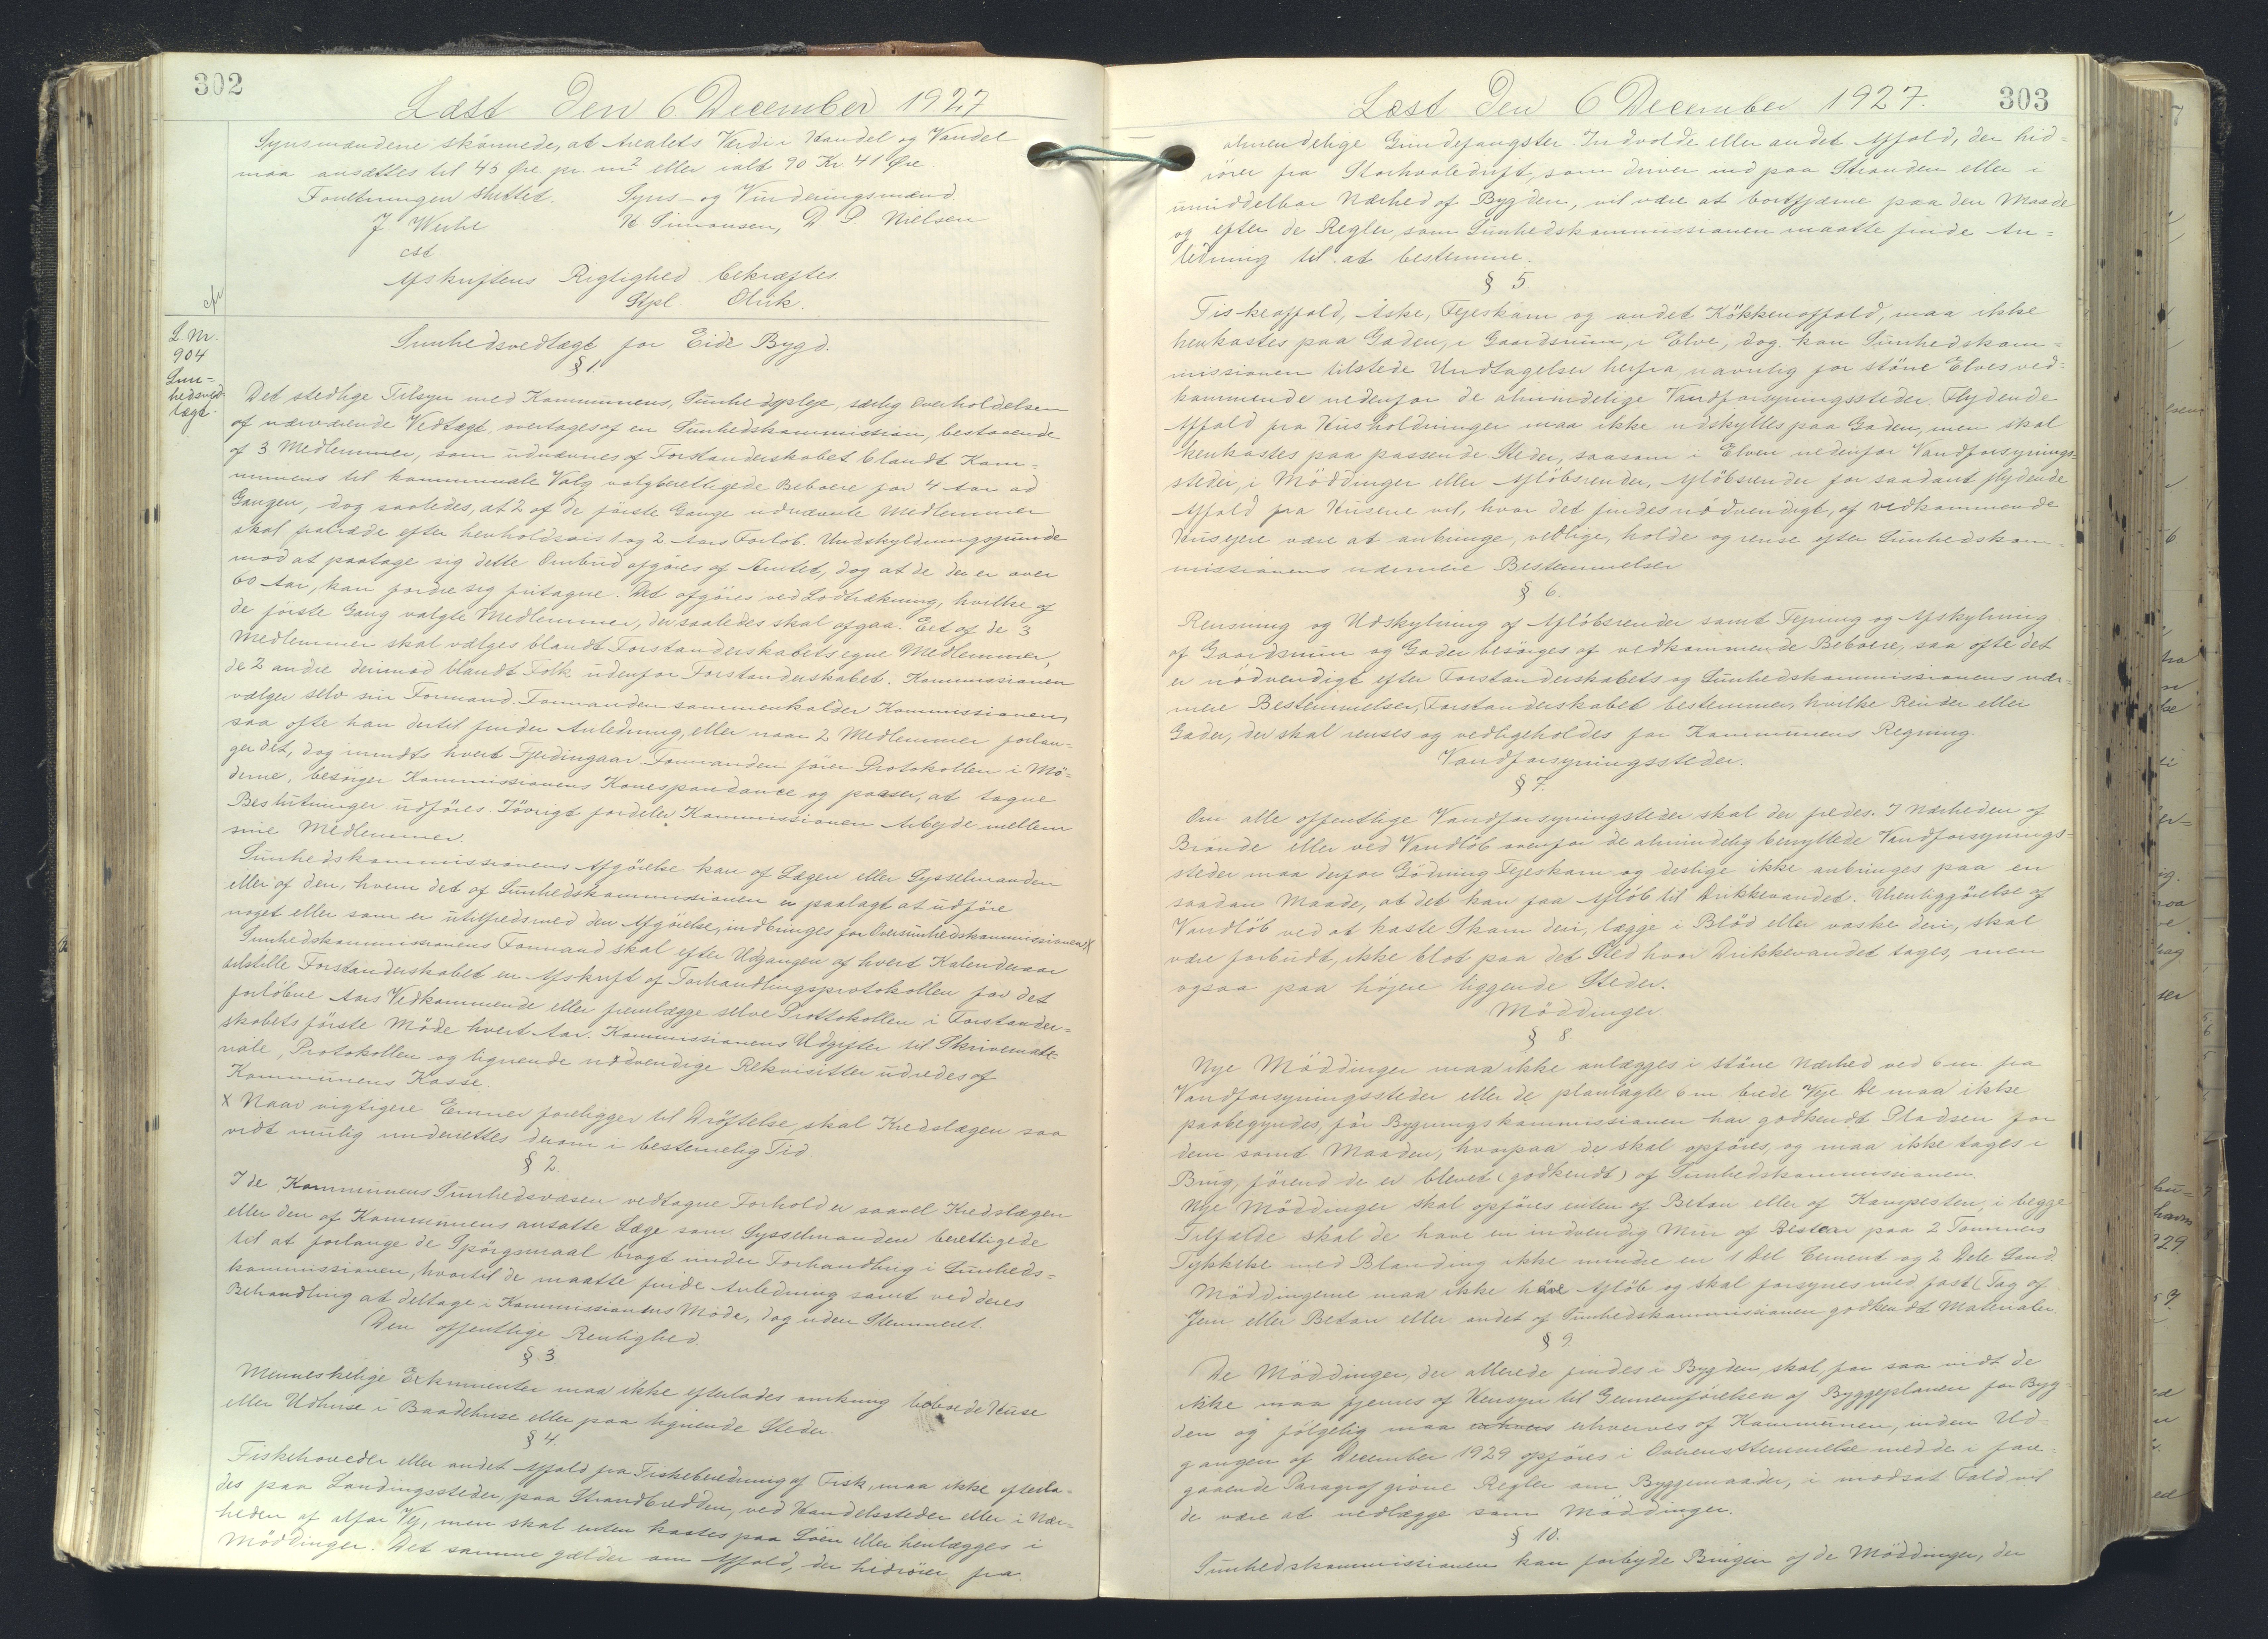 302
Læst Den 6 December 1927
Synsmændene skönnede, at Arealets Værdi i Handel og Vandel
maa ansættes til 45 Øre pr. m² eller ialt 90 Kr 41 Øre
Forretningen sluttet. Syns- og Vurderingsmænd
J Werhe H Simonsen, D P Nielsen
cst
Afskriftens Rigtighed bekræftes.
Stpl. Olrik.
cfr
L. Nr.
904
Sun-
hedsved-
tægt.
Sunhedsvedtægt for Eide Bygd.
§ 1.
Det stedlige Tilsyn med Kommunens, Sunhedspleje, særlig Overholdelsen
af nærværende Vedtægt overtages af en Sunhedskommission, bestaaende
af 3 Medlemmer, som udnævnes af Forstanderskabet blandt Kom-
munens til kommunale Valg valgberettigede Beboere for 4 Aar ad
Gangen, dog saaledes, at 2 af de förste Gange udnævnte Medlemmer
skal fratræde efter henholdsvis 1 og 2 Aars Forlöb. Undskyldningsgrunde
mod at paatage sig dette Ombud afgöres af Amtet, dog at de der er over
60 Aar, kan fordre sig fritagne. Det afgöres ved Lodtrækning, hvilke af
de förste Gang valgte Medlemmer, der saaledes skal afgaa. Eet af de 3
Medlemmer skal vælges blandt Forstanderskabets egne Medlemmer,
de 2 andre derimod blandt Folk udenfor Forstanderskabet. Kommissionen
vælger selv sin Formand. Formanden sammenkalder Kommissionen,
saa ofte han dertil finder Anledning, eller naar 2 Medlemmer forlan-
ger det, dog mindts hvert Fjerdingaar. Formanden förer Protokollen i Mö-
derne, besörger Kommissionens Korrespondance og passer, at tagne
Beslutninger udföres. Iövrigt fordeler Kommissionen Arbejde mellem
sine Medlemmer.
Sunhedskommissionens Afgörelse kan af Lægen eller Sysselmanden
eller af den, hvem det af Sunhedskommissionen er paalagt at udföre
noget eller som er utilfreds med den Afgörelse, indbringes for Oversunhedskommissionen X
Sunhedskommissionens Formand skal efter Udgangen af hvert Kalenderaar
tilstille Forstanderskabet en Afskrift af Forhandlingsprotokollen for det
forlöbne Aars Vedkommende eller fremlægge selve Prottokollen i Forstander-
skabets förste Möde hvert Aar. Kommissionens Udgifter til Skrivemate-
riale, Protokollen og lignende nödvendige Rekvisitter udredes af
Kommunens Kasse.
X Naar vigtigere Emner foreligger til Dröftelse skal Kredslægen saa
vidt mulig underrettes derom i bestemelig Tid
§ 2.
I de Kommunens Sunhedsvæsen vedtagne Forhold er saavel Kredslægen
eller den af Kommunens ansatte Læge som Sysselmanden berettigede
til at forlange de Spörgsmaal bragt under Forhandling i Sunheds-
kommissionen, hvortil de maatte finde Anledning samt ved deres
Behandling at deltage i Kommissionens Möde, dog uden Stemmeret.
Den offentlige Renlighed.
§ 3
Menneskelige Exkrimenter maa ikke efterlades omkring beboede Huse
eller Udhuse i Baadehuse eller paa lignende Steder.
§ 4.
Fiskehoveder eller andet Affald fra Fiskeberedning af Fisk, maa ikke efterla-
des paa Landingssteder, paa Strandbredden, ved Handelssteder eller i Nær-
heden af alfar Vej, men skal enten kastes paa Söen eller henlægges i
Möddinger. Det samme gælder om Affald, der hidrörer fra
Læst Den 6 December 1927.
303
almendelige Grindefangster. Indvolde eller andet Affald, der hid-
rörer fra Storhvaledrift, som driver ind paa Stranden eller i
umiddelbar Nærhed af Bygden, vil være at bortfjærne paa den Maade
og efter de Regler, som Sunhedskommissionen maatte finde An-
ledning til at bestemme.
§ 5
Fiskeaffald, Aske, Fejeskarn og andet Kökkenaffald, maa ikke
henkastes paa Gaden, i Gaardsrum, i Elve, dog kan Sunhedskom-
missionen tilstede Undtagelser herfra navnlig for större Elves ved-
kommende nedenfor de almindelige Vandforsyningssteder. Flydende
Affald fra Husholdninger maa ikke udskyllespaa Gaden, men skal
henkastes paa passende Steder, saasom i Elven nedenfor Vandforsynings-
steder, i Möddinger eller Aflöbsrender, Aflöbsrender for saadant flydende
Affald fra Husene vil, hvor det findes nödvendigt, af vedkommende
Husejere være at anbringe, vedlige, holde og rense efter Sunhedskom-
missionens nærmere Bestemmelser
§ 6.
Rensning og Udskylning af Aflöbsrender samt Fejning og Afskylning
af Gaardsrum og Gader besörges af vedkommende Beboere, saa ofte det
er nödvendigt efter Forstanderskabets og Sunhedskommissionens nær-
mere Bestemmelser, Forstanderskabet bestemmer, hvilke Render eller
Gader, der skal renses og vedligeholdes for Kommunens Regning.
Vandforsyningssteder.
§ 7.
Om alle offentlige Vandforsyningsteder skal der fredes. I Nærheden af
Brönde eller ved Vandlöb ovenfor de almindelig benyttede Vandforsynings-
steder maa derfor Gödning Fejeskarn og deslige ikke anbringes paa en
saadan Maade, at det kan faa Aflöb til Drikkevandet. Urenliggörelse af
Vandlöb ved at kaste Skarn deri, lægge i Blöd eller vaske deri, skal
være forbudt, ikke blot paa det Sted hvor Drikkevandet tages, men
ogsaa paa höjere liggende Steder.
Möddinger
§ 8
Nye Möddinger maa ikke anlægges i större Nærhed ved 6 m. fra
Vandforsyningssteder eller de planlagte 6 m. brede Veje. De maa ikke
paabegyndes, för Bygningskommissionen har godkendt Pladsen for
dem samt Maaden, hvorpaa de skal opföres, og maa ikke tages i
Brug, förend de er blevet (godkendt) af Sunhedskommissionen.
Nye Möddinger skal opföres enten af Beton eller af Kampesten, i begge
Tilfælde skal de have en indvendig Mur af Beton paa 2 Tommers
Tykkelse med Blanding ikke mindre en 1 Del Cement og 2 Dele Sand.
Möddingerne maa ikke have Aflöb og skal forsynes med fast (Tag af
Jern eller Beton eller andet af Sunhedskommissionen godkendt Materialer.
§ 9.
De Möddinger, der allerede findes i Bygden, skal, for saa vidt de
ikke maa fjernes af Hensyn til Gennemförelsen af Byggeplanen for Byg-
den og fölgelig maa erhverves af Kommunen, inden Ud-
gangen af December 1929 opföres i Overensstemmelse med de i fore-
gaaende Paragraf givne Regler om Byggemaader, i modsat Fald vil
de være at nedlægge som Möddinger.
§ 10.
Sunhedskommissionen kan forbyde Brugen af de Möddinger, der